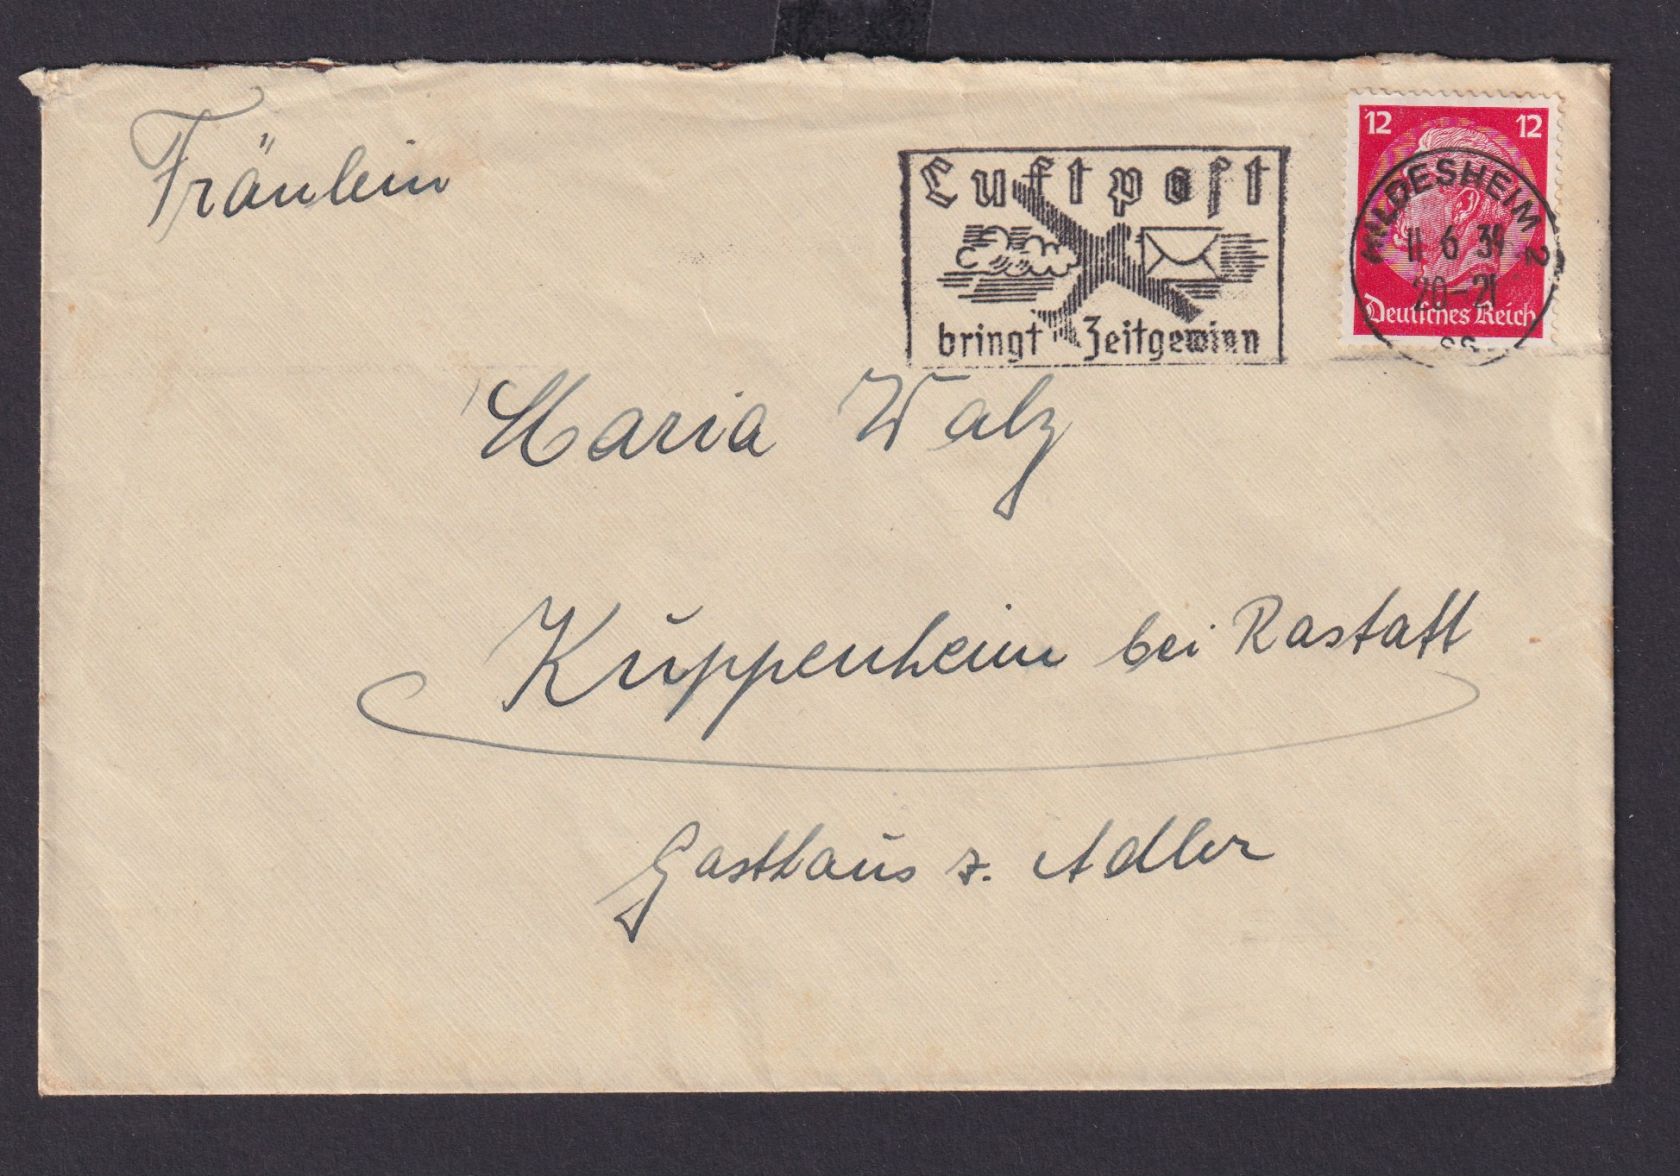 Fräulein
12 12
Luftpost
HILDESHEIM 2
11 6 39
20-21
Deutsches Reich
bringt Zeitgewinn
Maria Walz
Kuppenheim bei Rastatt
Gasthaus z. Adler